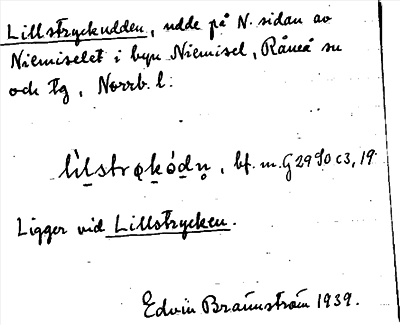 Lillstryckudden, udde på N. sidan av
Niemiselet i byn Niemisel, Råneå sn
och tg, Norrb. l:
lìlstrǫkódn̥, bf. m. G 29 SO c3, 19
Ligger vid Lillstrycken.
Edvin Brännström 1939.